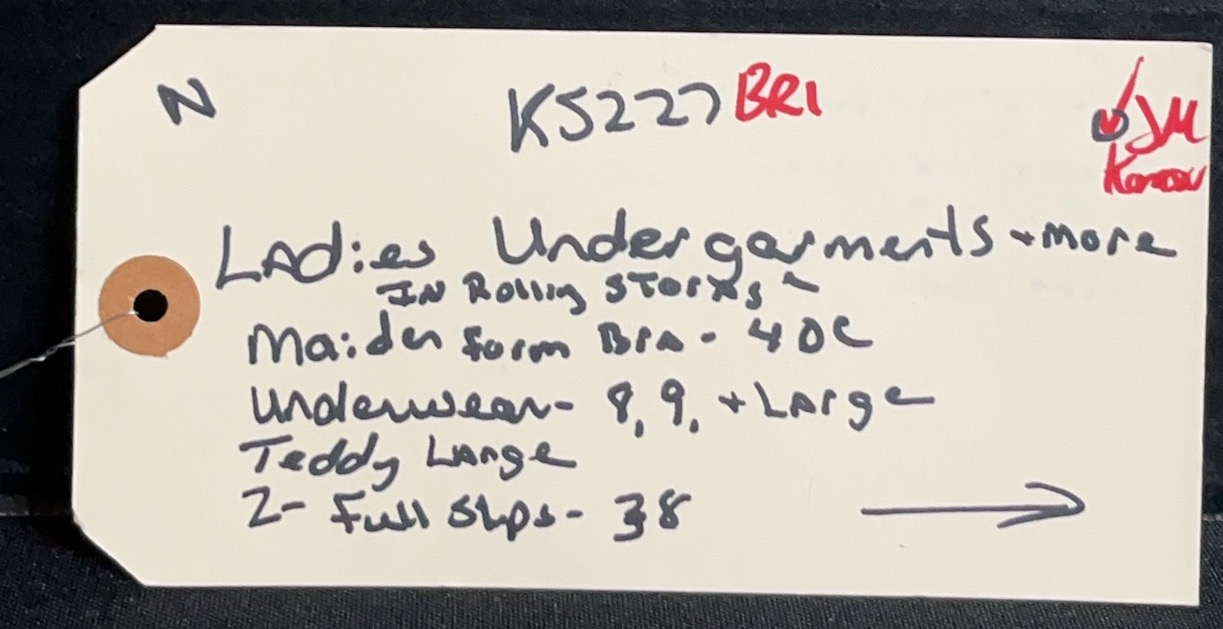 N K5227 BR1 JM
Ladies Undergarments + more
IN Rolling Storage
Maiden form Bra - 40C
Underwear - 8, 9, + Large
Teddy Large
2 - Full Slips - 38